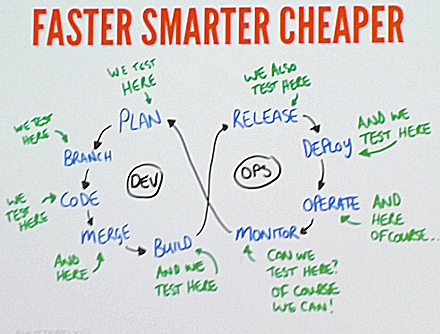 FASTER SMARTER CHEAPER
WE TEST
HERE
PLAN
WE TEST
HERE
BRANCH
WE
TEST
HERE
CODE
DEV
MERGE
AND
HERE
BUILD
AND WE
TEST HERE
WE ALSO
TEST HERE
RELEASE
AND WE
TEST HERE
DEPLOY
OPS
OPERATE
AND
HERE
OF COURSE...
MONITOR
CAN WE
TEST HERE?
OF COURSE
WE CAN!